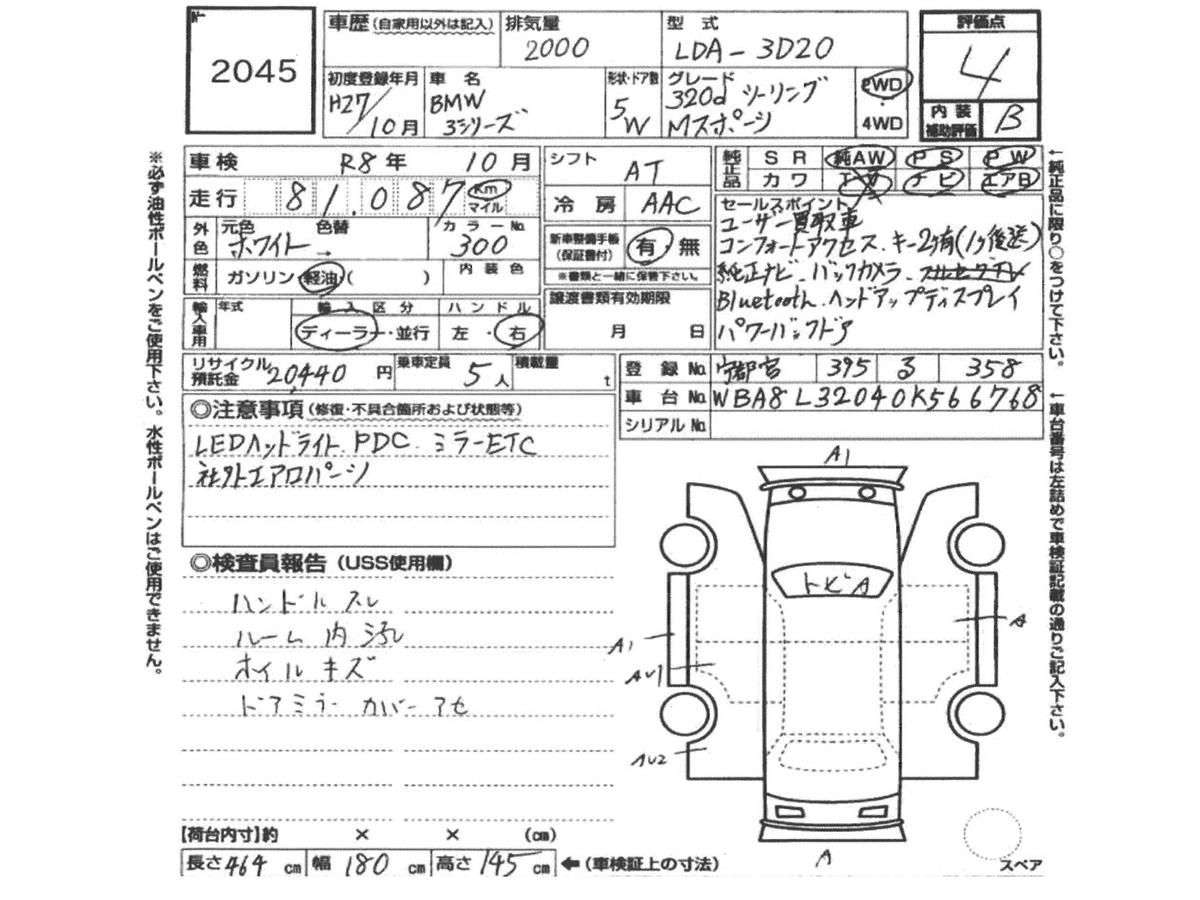 2045
車歴(自家用以外は記入)
排気量
2000
型式
LDA-3D20
評価点
4
初度登録年月
H27/10月
車名
BMW
3シリーズ
形状・ドア数
5/W
グレード
320d ツーリング
Mスポーツ
2WD
・
4WD
内装
補助評価
B
車検 R8年 10月
走行 81.087 Km
マイル
シフト AT
冷房 AAC
純正品
SR 純AW PS PW
カワ TV ナビ エアB
外色
元色 色替
ホワイト→
カラーNo.
300
新車整備手帳
(保証書付)
有・無
※書類と一緒に保管下さい。
燃料
ガソリン・軽油・( )
内装色
譲渡書類有効期限
月 日
輸入車用
年式
輸入区分
ディーラー・並行
ハンドル
左・右
セールスポイント
ユーザー買取車
コンフォートアクセス.キー2ヶ有(1ヶ後送)
純正ナビ.バックカメラ.フルセグTV
Bluetooth.ヘッドアップディスプレイ
パワーバックドア
リサイクル
預託金
20,440円
乗車定員
5人
積載量
t
登録No. 宇都宮 395 る 358
車台No. WBA8L32040K566768
シリアルNo.
◎注意事項(修復・不具合箇所および状態等)
LEDヘッドライト.PDC.ミラーETC
社外エアロパーツ
◎検査員報告(USS使用欄)
ハンドル スレ
ルーム内 汚れ
ホイル キズ
ドアミラー カバー アセ
A1
トビA
A1
A
AU1
AU2
A
スペア
【荷台内寸】約 × × (cm)
長さ464cm 幅180cm 高さ145cm ←(車検証上の寸法)
※必ず油性ボールペンをご使用下さい。水性ボールペンはご使用できません。
↑純正品に限り○をつけて下さい。
↑車台番号は左詰めで車検証記載の通りご記入下さい。